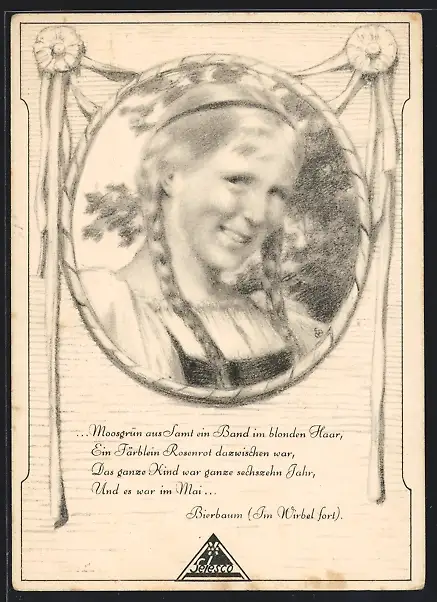 ...Moosgrün aus Samt ein Band im blonden Haar,
Ein Färblein Rosenrot dazwischen war,
Das ganze Kind war ganze sechszehn Jahr,
Und es war im Mai...
Bierbaum (Im Wirbel fort).
Selesco